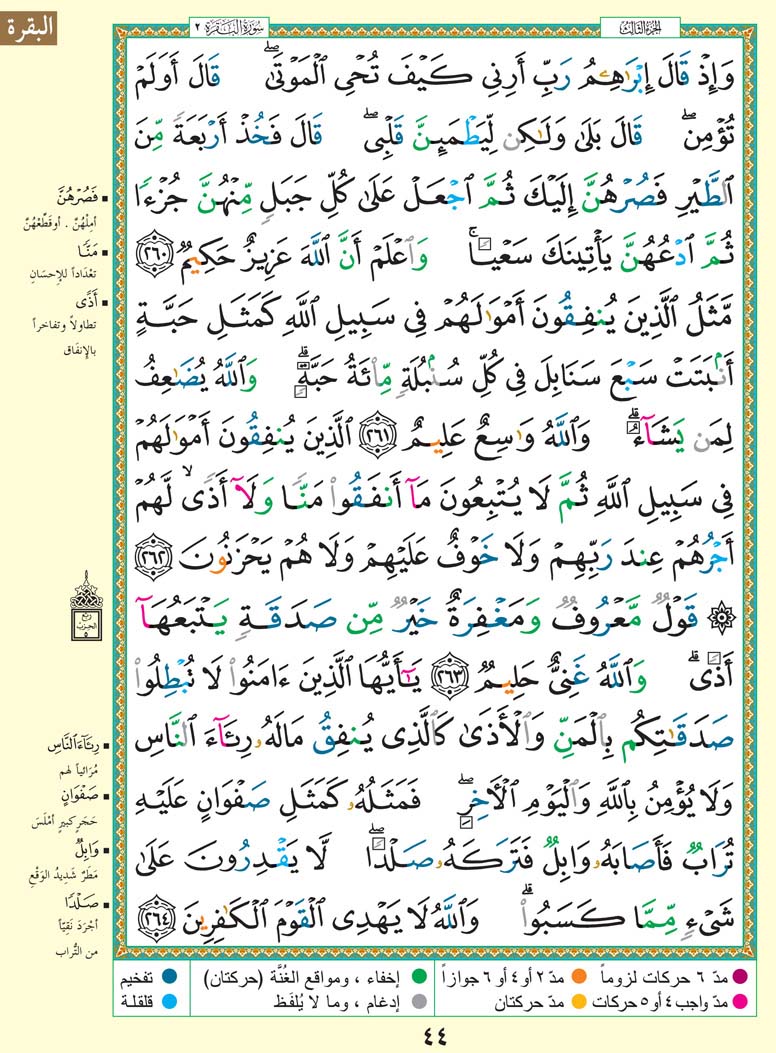 البقرة
سُورَةُ البَقَرَةِ ٢
الجزء الثالث
وَإِذْ قَالَ إِبْرَٰهِـۧمُ رَبِّ أَرِنِى كَيْفَ تُحْىِ ٱلْمَوْتَىٰ ۖ قَالَ أَوَلَمْ
تُؤْمِن ۖ قَالَ بَلَىٰ وَلَٰكِن لِّيَطْمَئِنَّ قَلْبِى ۖ قَالَ فَخُذْ أَرْبَعَةً مِّنَ
ٱلطَّيْرِ فَصُرْهُنَّ إِلَيْكَ ثُمَّ ٱجْعَلْ عَلَىٰ كُلِّ جَبَلٍ مِّنْهُنَّ جُزْءًا
ثُمَّ ٱدْعُهُنَّ يَأْتِينَكَ سَعْيًا ۚ وَٱعْلَمْ أَنَّ ٱللَّهَ عَزِيزٌ حَكِيمٌ ٢٦٠
مَّثَلُ ٱلَّذِينَ يُنفِقُونَ أَمْوَٰلَهُمْ فِى سَبِيلِ ٱللَّهِ كَمَثَلِ حَبَّةٍ
أَنۢبَتَتْ سَبْعَ سَنَابِلَ فِى كُلِّ سُنۢبُلَةٍ مِّا۟ئَةُ حَبَّةٍ ۗ وَٱللَّهُ يُضَٰعِفُ
لِمَن يَشَآءُ ۗ وَٱللَّهُ وَٰسِعٌ عَلِيمٌ ٢٦١ ٱلَّذِينَ يُنفِقُونَ أَمْوَٰلَهُمْ
فِى سَبِيلِ ٱللَّهِ ثُمَّ لَا يُتْبِعُونَ مَآ أَنفَقُوا۟ مَنًّا وَلَآ أَذًى ۙ لَّهُمْ
أَجْرُهُمْ عِندَ رَبِّهِمْ وَلَا خَوْفٌ عَلَيْهِمْ وَلَا هُمْ يَحْزَنُونَ ٢٦٢
۞ قَوْلٌ مَّعْرُوفٌ وَمَغْفِرَةٌ خَيْرٌ مِّن صَدَقَةٍ يَتْبَعُهَآ
أَذًى ۗ وَٱللَّهُ غَنِىٌّ حَلِيمٌ ٢٦٣ يَٰٓأَيُّهَا ٱلَّذِينَ ءَامَنُوا۟ لَا تُبْطِلُوا۟
صَدَقَٰتِكُم بِٱلْمَنِّ وَٱلْأَذَىٰ كَٱلَّذِى يُنفِقُ مَالَهُۥ رِئَآءَ ٱلنَّاسِ
وَلَا يُؤْمِنُ بِٱللَّهِ وَٱلْيَوْمِ ٱلْءَاخِرِ ۖ فَمَثَلُهُۥ كَمَثَلِ صَفْوَانٍ عَلَيْهِ
تُرَابٌ فَأَصَابَهُۥ وَابِلٌ فَتَرَكَهُۥ صَلْدًا ۖ لَّا يَقْدِرُونَ عَلَىٰ
شَىْءٍ مِّمَّا كَسَبُوا۟ ۗ وَٱللَّهُ لَا يَهْدِى ٱلْقَوْمَ ٱلْكَٰفِرِينَ ٢٦٤
▪ فَصُرْهُنَّ
أمِلْهُنّ . أوقَطِّعْهُنّ
▪ مَنًّا
تعْدَاداً للإحسَانِ
▪ أَذًى
تطاولاً وتفاخراً
بالإنفَاق
رُبع
الحِزب
٥
▪ رِئَآءَ النَّاسِ
مُرَائياً لهم
▪ صَفْوَانٍ
حَجَرٍ كبيرٍ أمْلَسَ
▪ وَابِلٌ
مَطَرٌ شَدِيدُ الوَقْعِ
▪ صَلْدًا
أجْرَدَ نَقِيّاً
من التُّراب
مدّ ٦ حركات لزوماً
مدّ ٢ أو ٤ أو ٦ جوازاً
إخفاء ، ومواقع الغُنَّة (حركتان)
تفخيم
مدّ واجب ٤ أو ٥ حركات
مدّ حركتان
إدغام ، وما لا يُلفَظ
قلقلة
٤٤